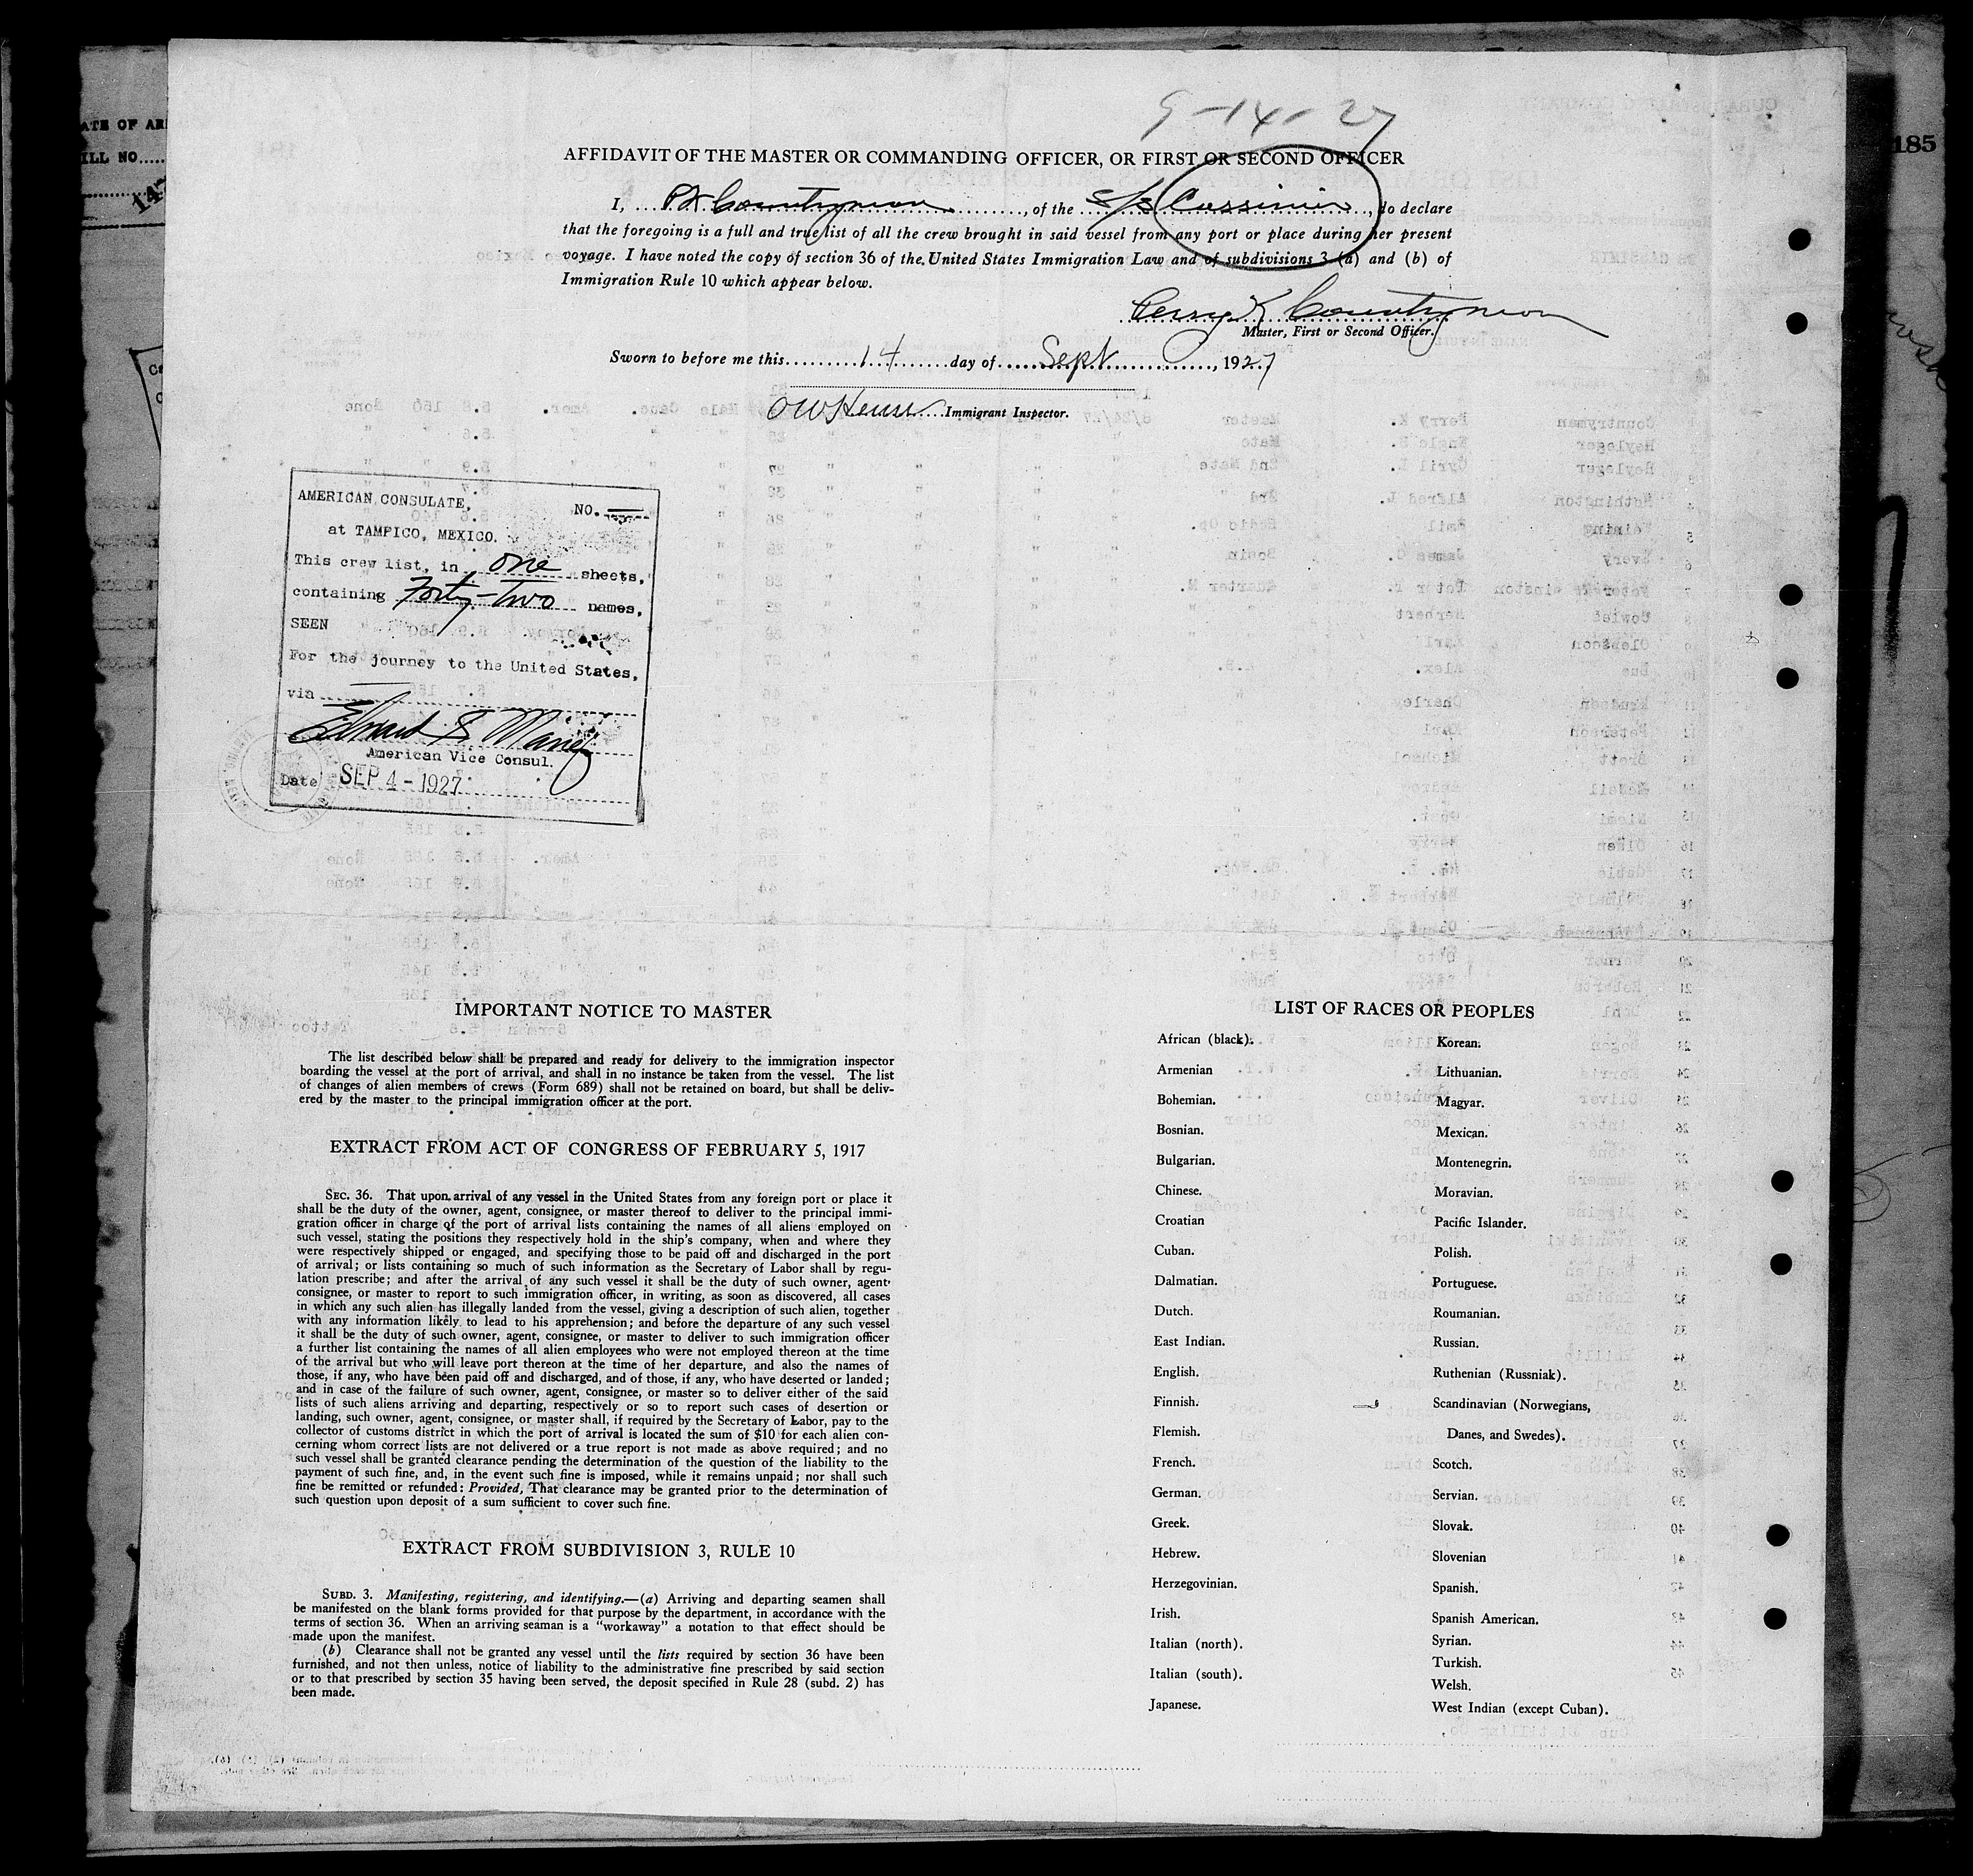 9-14-27
AFFIDAVIT OF THE MASTER OR COMMANDING OFFICER, OR FIRST OR SECOND OFFICER
I, P K Countryman, of the S/S Cassimir, do declare
that the foregoing is a full and true list of all the crew brought in said vessel from any port or place during her present
voyage. I have noted the copy of section 36 of the United States Immigration Law and of subdivisions 3 (a) and (b) of
Immigration Rule 10 which appear below.
Perry K Countryman
Master, First or Second Officer.
Sworn to before me this 14 day of Sept, 1927
Immigrant Inspector.
AMERICAN CONSULATE, NO.
at TAMPICO, MEXICO.
This crew list, in one sheets,
containing Forty-Two names,
SEEN
For the journey to the United States,
via
American Vice Consul.
Date SEP 4-1927
IMPORTANT NOTICE TO MASTER
The list described below shall be prepared and ready for delivery to the immigration inspector
boarding the vessel at the port of arrival, and shall in no instance be taken from the vessel. The list
of changes of alien members of crews (Form 689) shall not be retained on board, but shall be deliv-
ered by the master to the principal immigration officer at the port.
EXTRACT FROM ACT OF CONGRESS OF FEBRUARY 5, 1917
SEC. 36. That upon arrival of any vessel in the United States from any foreign port or place it
shall be the duty of the owner, agent, consignee, or master thereof to deliver to the principal immi-
gration officer in charge of the port of arrival lists containing the names of all aliens employed on
such vessel, stating the positions they respectively hold in the ship's company, when and where they
were respectively shipped or engaged, and specifying those to be paid off and discharged in the port
of arrival; or lists containing so much of such information as the Secretary of Labor shall by regu-
lation prescribe; and after the arrival of any such vessel it shall be the duty of such owner, agent
consignee, or master to report to such immigration officer, in writing, as soon as discovered, all cases
in which any such alien has illegally landed from the vessel, giving a description of such alien, together
with any information likely to lead to his apprehension; and before the departure of any such vessel
it shall be the duty of such owner, agent, consignee, or master to deliver to such immigration officer
a further list containing the names of all alien employees who were not employed thereon at the time
of the arrival but who will leave port thereon at the time of her departure, and also the names of
those, if any, who have been paid off and discharged, and of those, if any, who have deserted or landed;
and in case of the failure of such owner, agent, consignee, or master so to deliver either of the said
lists of such aliens arriving and departing, respectively or so to report such cases of desertion or
landing, such owner, agent, consignee, or master shall, if required by the Secretary of Labor, pay to the
collector of customs district in which the port of arrival is located the sum of $10 for each alien con-
cerning whom correct lists are not delivered or a true report is not made as above required; and no
such vessel shall be granted clearance pending the determination of the question of the liability to the
payment of such fine, and, in the event such fine is imposed, while it remains unpaid; nor shall such
fine be remitted or refunded: Provided, That clearance may be granted prior to the determination of
such question upon deposit of a sum sufficient to cover such fine.
EXTRACT FROM SUBDIVISION 3, RULE 10
SUBD. 3. Manifesting, registering, and identifying.—(a) Arriving and departing seamen shall
be manifested on the blank forms provided for that purpose by the department, in accordance with the
terms of section 36. When an arriving seaman is a "workaway" a notation to that effect should be
made upon the manifest.
(b) Clearance shall not be granted any vessel until the lists required by section 36 have been
furnished, and not then unless, notice of liability to the administrative fine prescribed by said section
or to that prescribed by section 35 having been served, the deposit specified in Rule 28 (subd. 2) has
been made.
LIST OF RACES OR PEOPLES
African (black).
Armenian
Bohemian.
Bosnian.
Bulgarian.
Chinese.
Croatian
Cuban.
Dalmatian.
Dutch.
East Indian.
English.
Finnish.
Flemish.
French.
German.
Greek.
Hebrew.
Herzegovinian.
Irish.
Italian (north).
Italian (south).
Japanese.
Korean.
Lithuanian.
Magyar.
Mexican.
Montenegrin.
Moravian.
Pacific Islander.
Polish.
Portuguese.
Roumanian.
Russian.
Ruthenian (Russniak).
Scandinavian (Norwegians,
Danes, and Swedes).
Scotch.
Servian.
Slovak.
Slovenian
Spanish.
Spanish American.
Syrian.
Turkish.
Welsh.
West Indian (except Cuban).
185